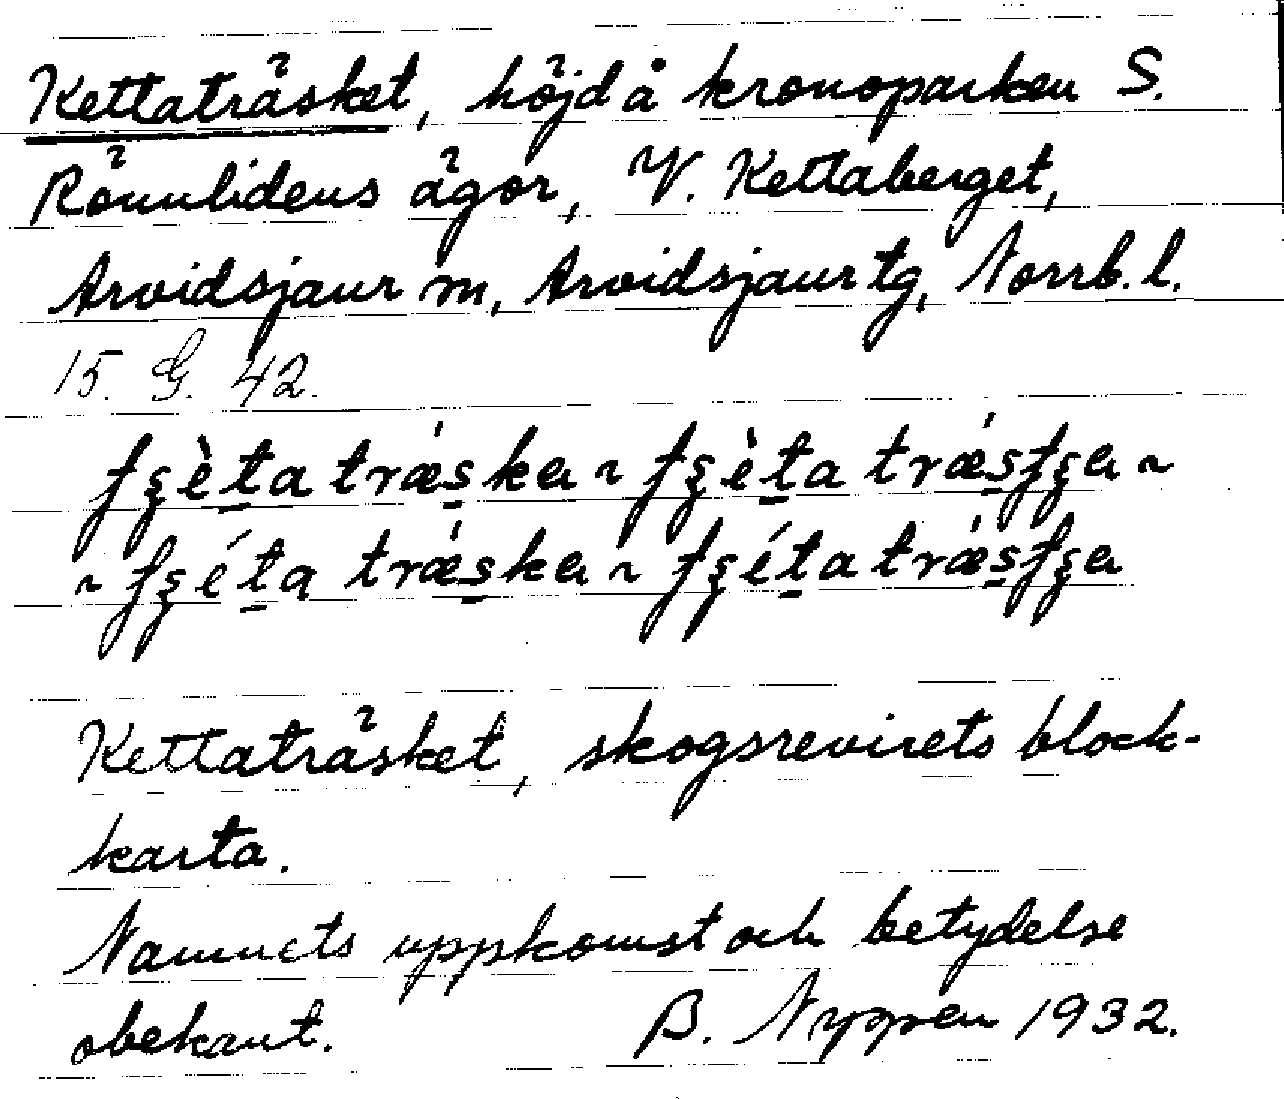 Kettaträsket, höjd å kronoparken S.
Rönnlidens ägor, V. Kettaberget,
Arvidsjaur m, Arvidsjaur tg, Norrb. l.
15. G. 42.
ʃʂèta trǽska ~ ʃʂèta trǽsʃʂa ~
~ ʃʂéta trǽska ~ ʃʂéta trǽsʃʂa
Kettaträsket, skogsrevirets block-
karta.
Namnets uppkomst och betydelse
obekant. B. Nyppen 1932.